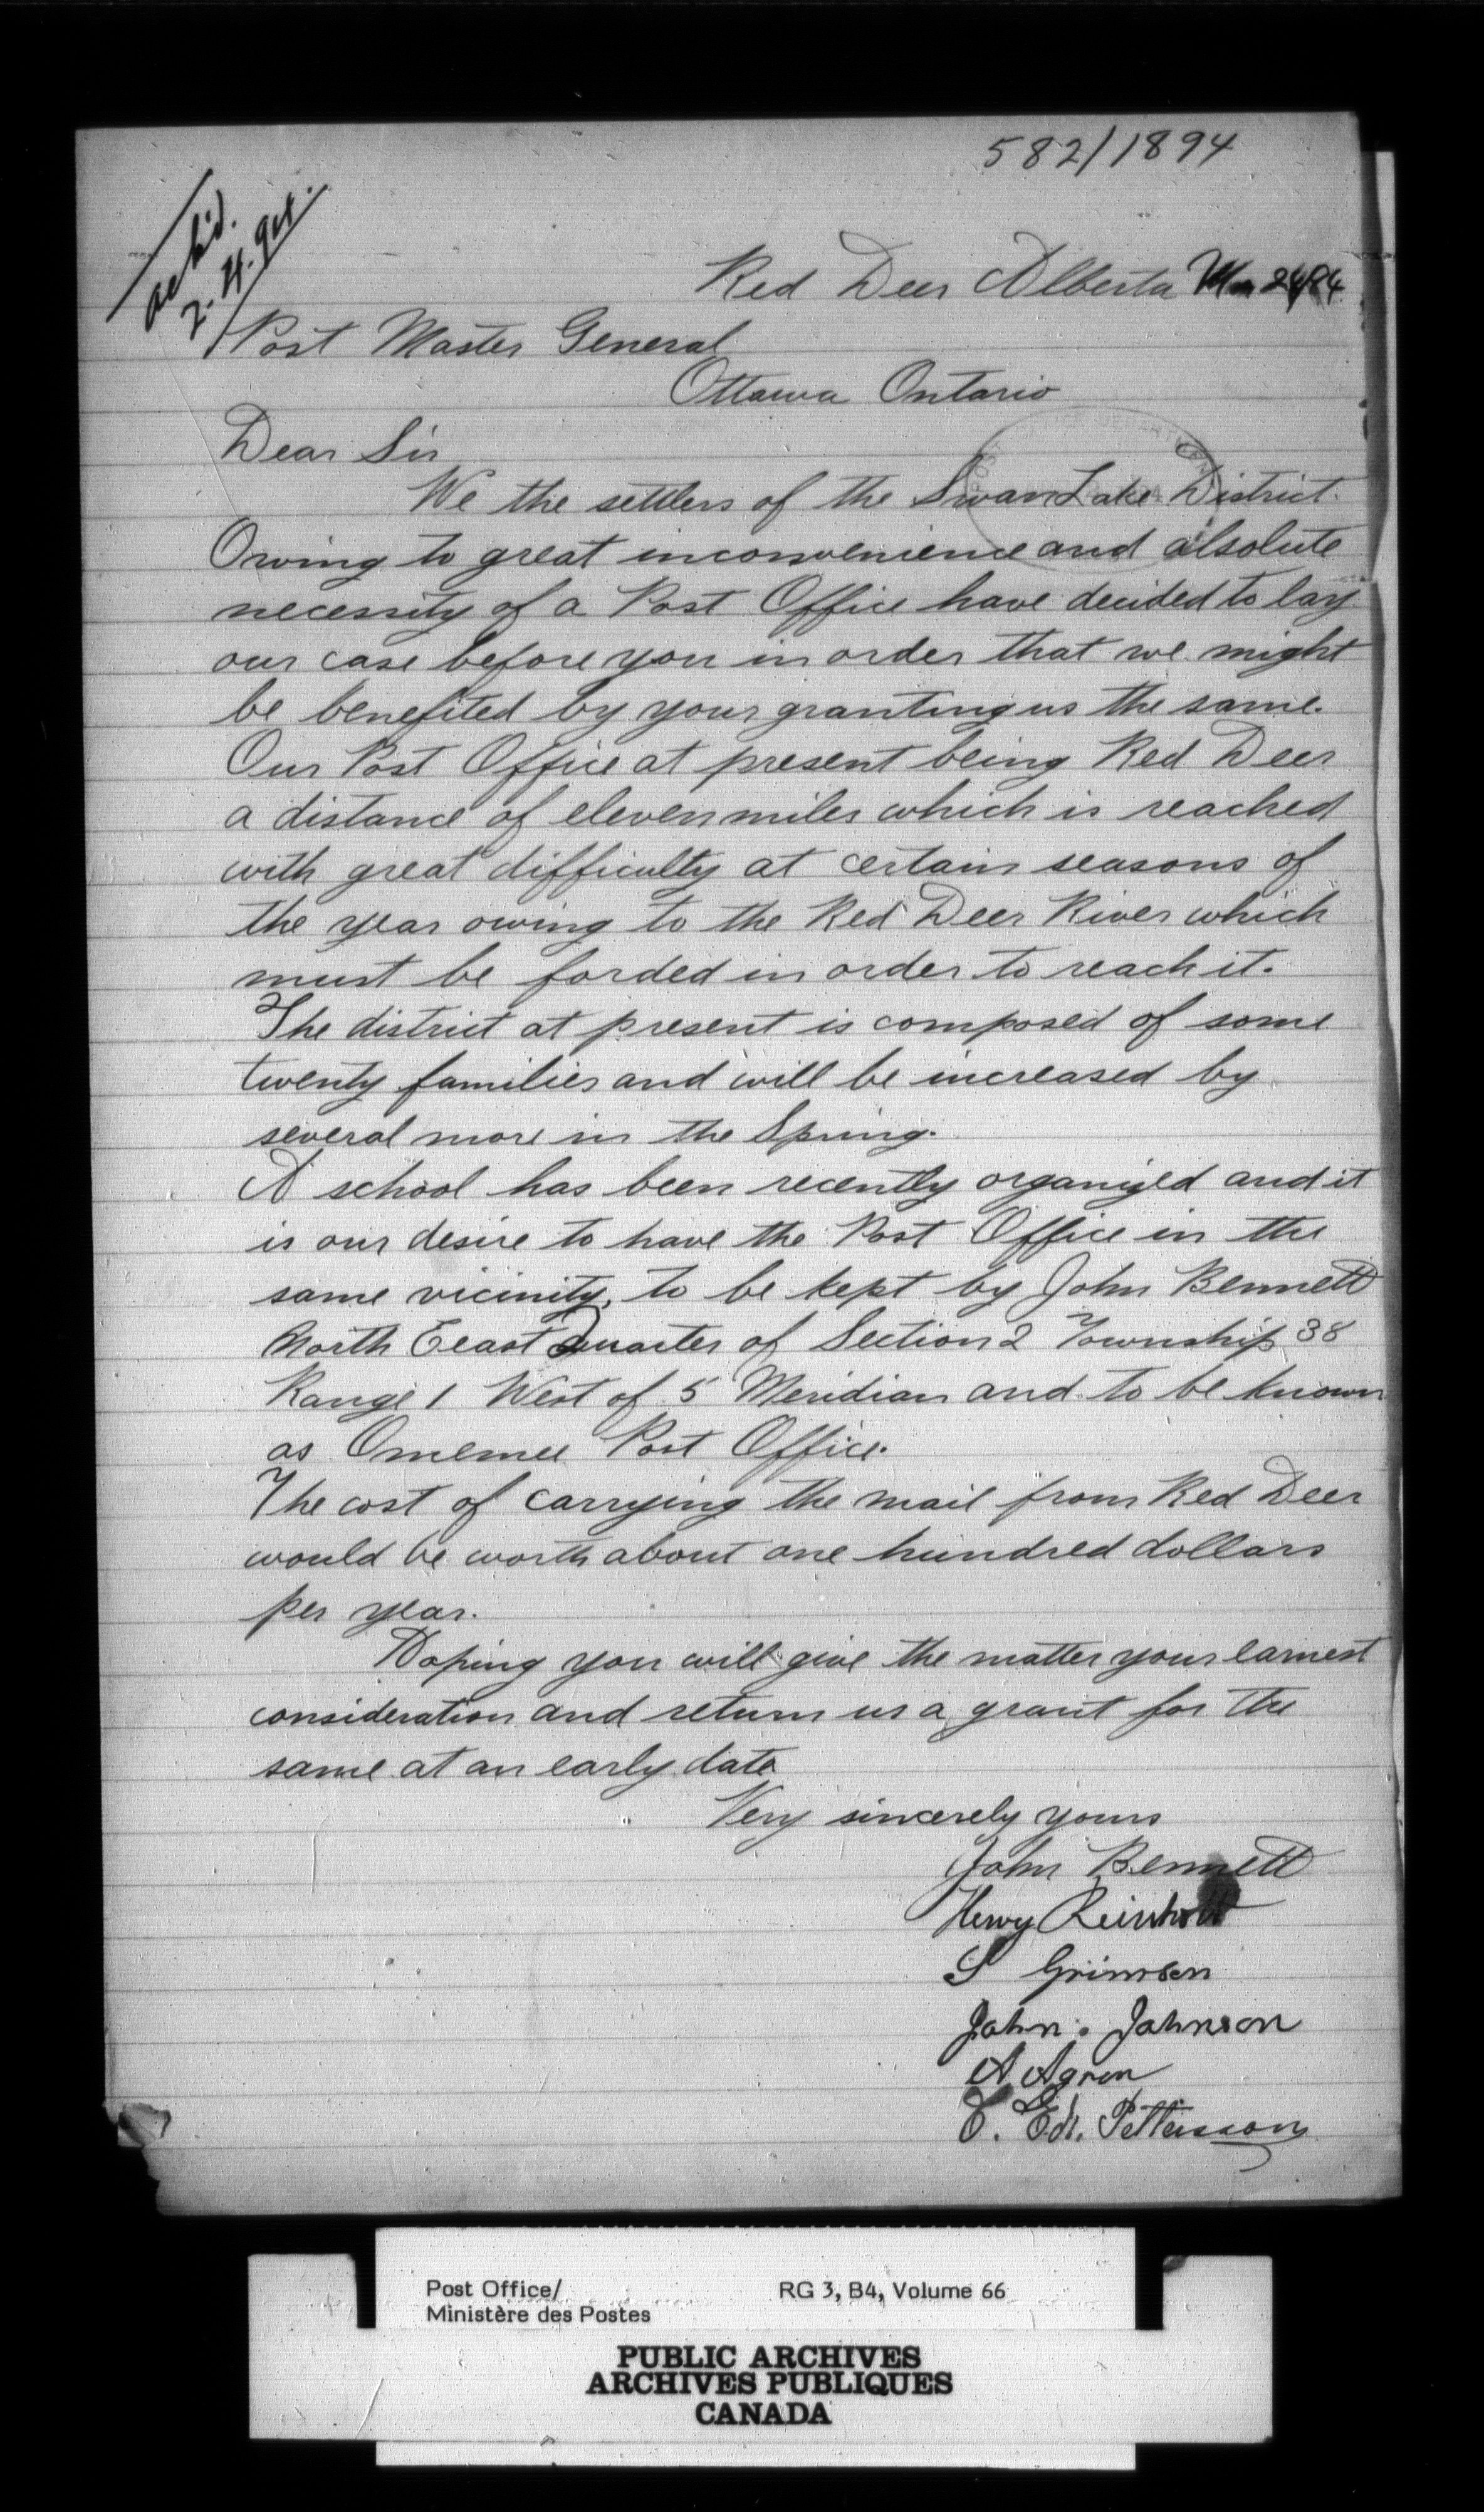 582/1894
ack'd.
2.4.94.
Red Deer Alberta
Post Master General
Ottawa Ontario
Dear Sir
We the settlers of the Swan Lake District.
Owing to great inconvenience and absolute
necessity of a Post Office have decided to lay
our case before you in order that we might
be benefited by your granting us the same.
Our Post Office at present being Red Deer
a distance of eleven miles which is reached
with great difficulty at certain seasons of
the year owing to the Red Deer River which
must be forded in order to reach it.
The district at present is composed of some
twenty families and will be increased by
several more in the Spring.
A school has been recently organized and it
is our desire to have the Post Office in the
same vicinity, to be kept by John Bennett
North Eeast Quarter of Section 2 Township 38
Range 1 West of 5 Meridian and to be known
as Omemee Post Office.
The cost of carrying the mail from Red Deer
would be worth about one hundred dollars
per year.
Hoping you will give the matter your earnest
consideration and return us a grant for the
same at an early date
Very sincerely yours
John Bennett
Henry Reinholt
S Grimson
John. Johnson
A Agren
C. Ed. Pettersson
Post Office/
Ministère des Postes
RG 3, B4, Volume 66
PUBLIC ARCHIVES
ARCHIVES PUBLIQUES
CANADA